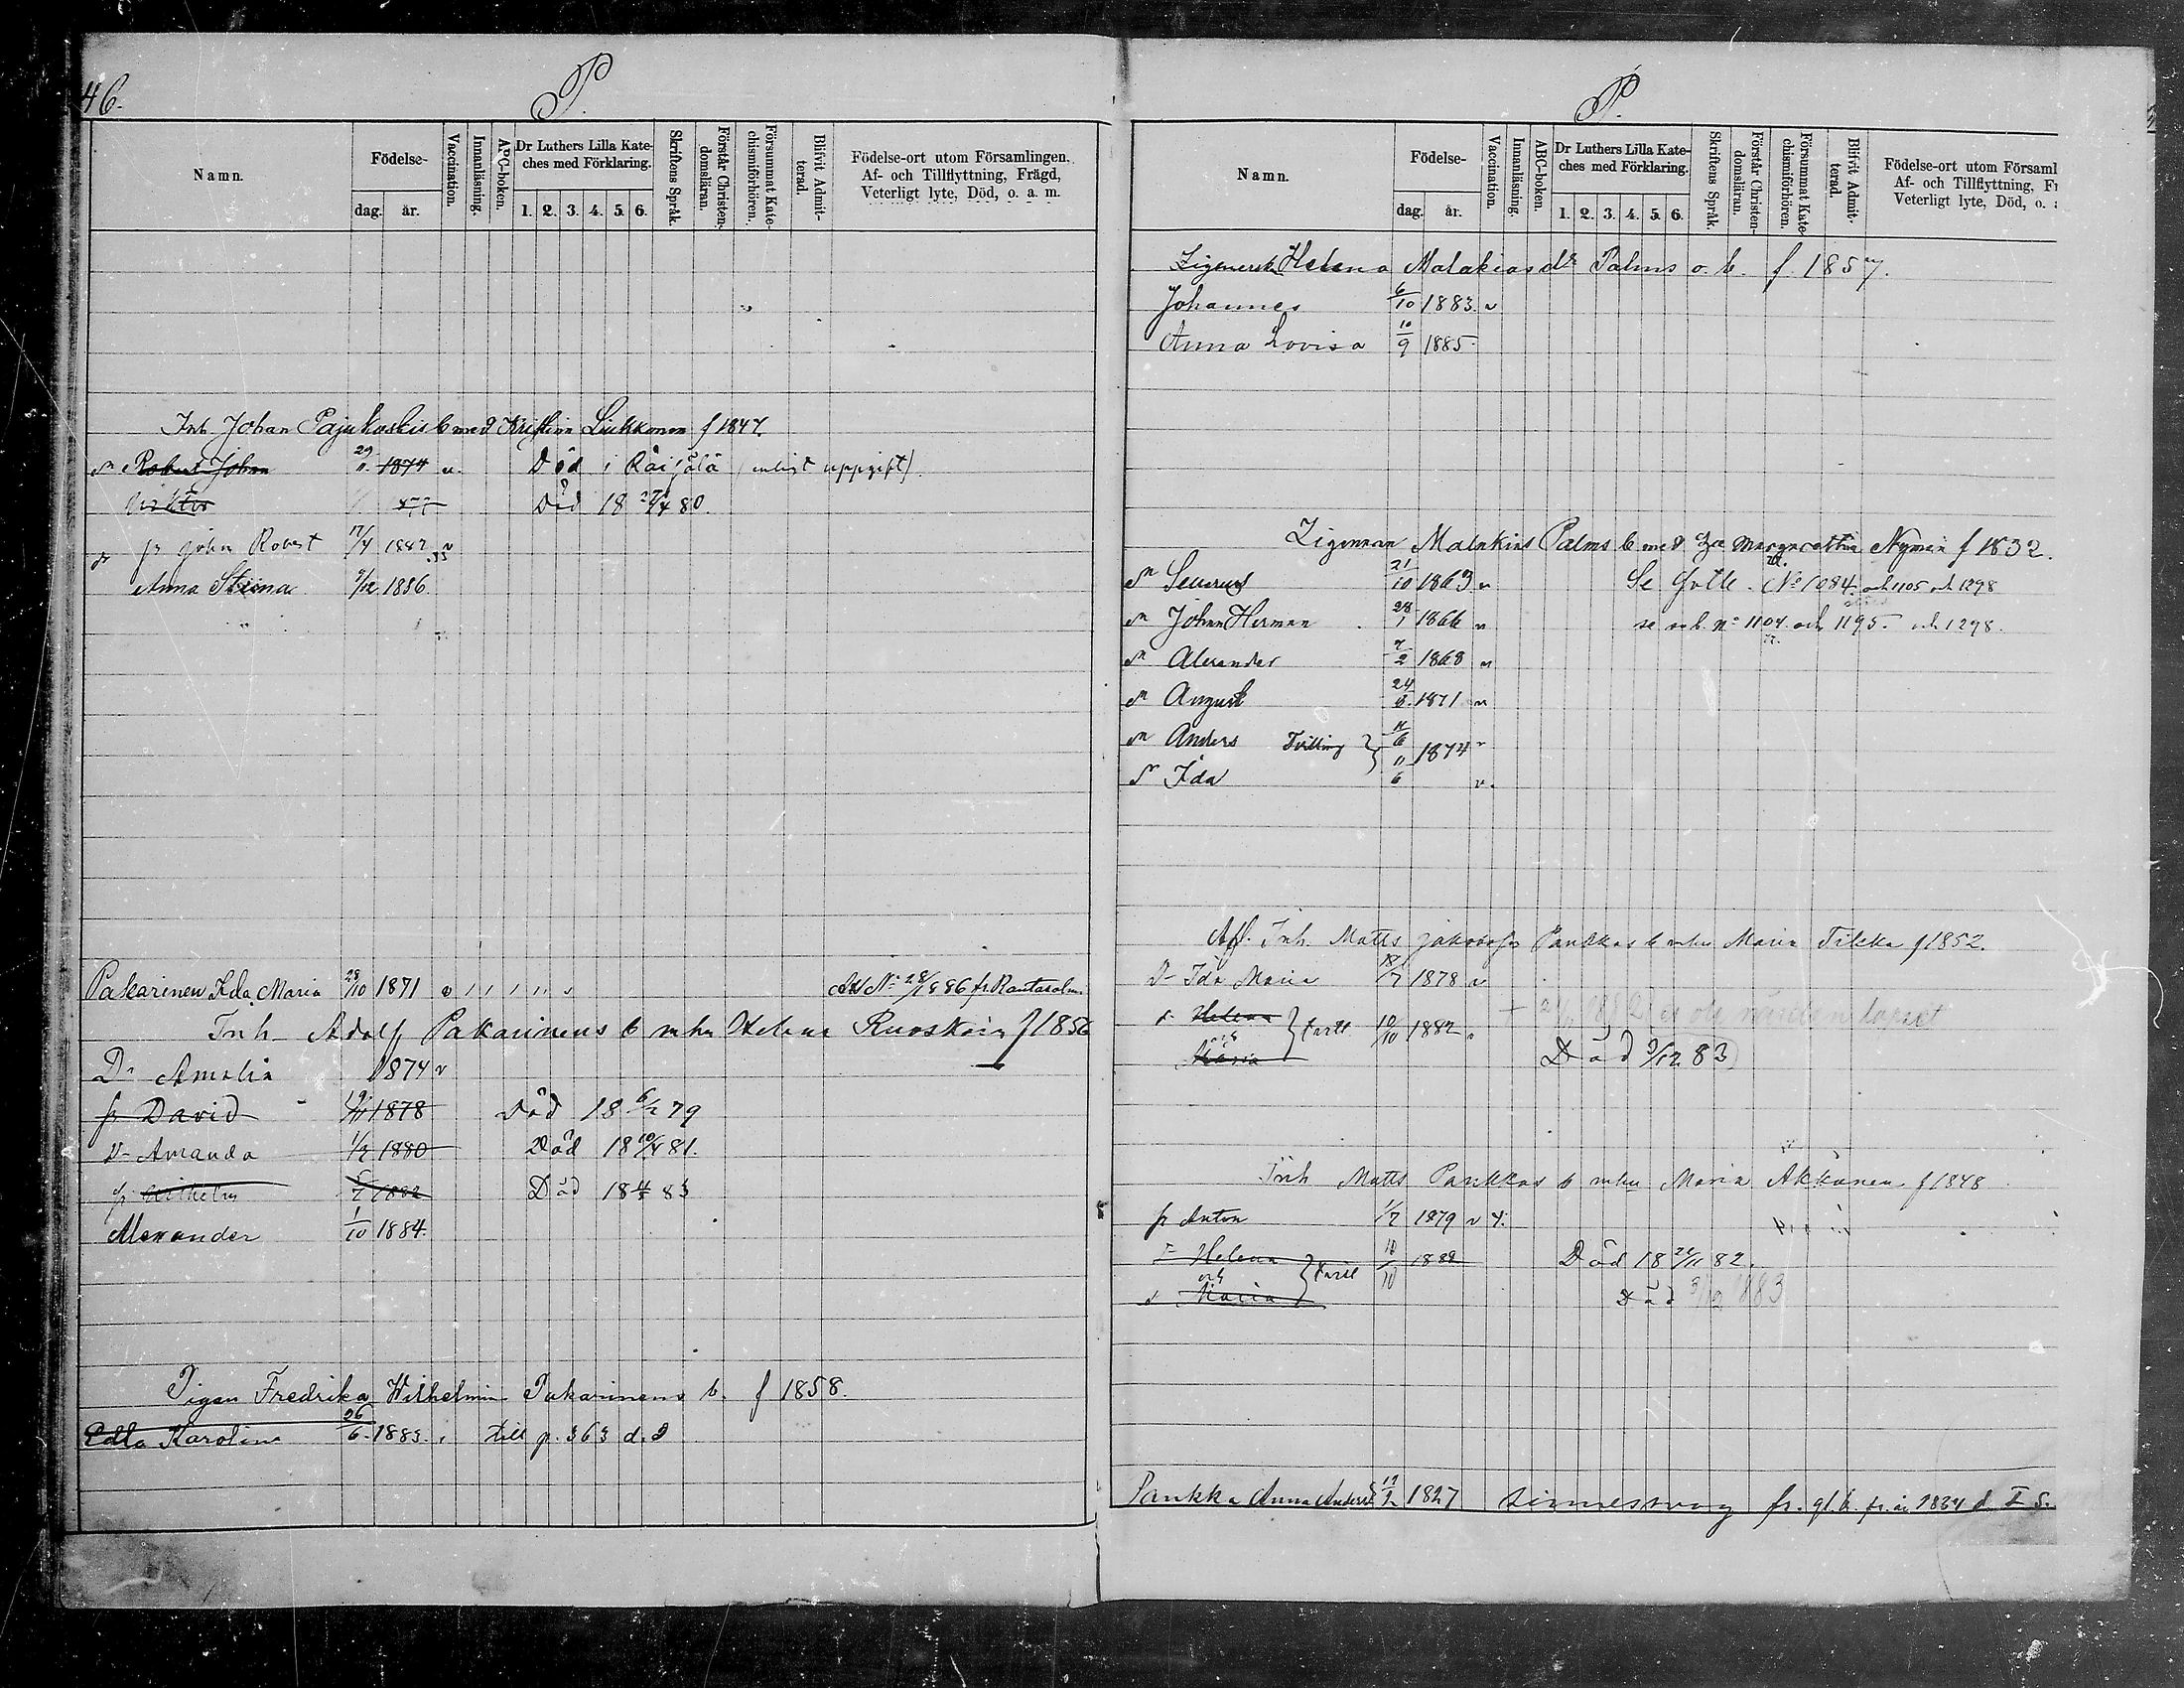 46.
P.
Namn.
Födelse-
dag. år.
Vaccination.
Innanläsning.
ABC-boken.
Dr Luthers Lilla Kate-
ches med Förklaring.
1. 2. 3. 4. 5. 6.
Skriftens Språk.
Förstår Christen-
domsläran.
Försummat Kate-
chismiförhören.
Blifvit Admit-
terad.
Födelse-ort utom Församlingen.
Af- och Tillflyttning, Frägd,
Veterligt lyte, Död, o. a. m.
Inh. Johan Pajukoskis b med Kristina Liukkonen f 1847.
sn Robert Johan 29/11 1874 v. Död i Räisälä (enligt uppgift).
Viktor 1877 Död 18 27/4 80.
gs Johan Robert 17/4 1882 v
Anna Stina 9/12 1886
Pakarinen Ida Maria 28/10 1871 v No 28/1886 fr. Rantasalmi
Inh. Adolf Pakarinens b m hu Helena Ruoskain f 1856
Dr Amalia 1874 v
gs David 19/11 1878 Död 18 6/2 79
Dr Amanda 1/2 1880 Död 18 10/4 81.
gs Wilhelm 1882 Död 18 83
Alexander 1/10 1884.
Pigan Fredrika Wilhelmin Pakarinens b. f 1858.
Edla Karolina 26/6. 1883. till p. 363 d. 2
P.
Namn.
Födelse-
dag. år.
Vaccination.
Innanläsning.
ABC-boken.
Dr Luthers Lilla Kate-
ches med Förklaring.
1. 2. 3. 4. 5. 6.
Skriftens Språk.
Förstår Christen-
domsläran.
Försummat Kate-
chismiförhören.
Blifvit Admit-
terad.
Födelse-ort utom Församl
Af- och Tillflyttning, Fr
Veterligt lyte, Död, o.
Zigenersk Helena Malakias dr Palms o. b. f. 1857.
Johannes 6/10 1883. v
Anna Lovisa 10/9 1885.
Zigenaren Malakias Palms b med Margaretha Nyman f 1832.
sn Severus 21/10 1863 v Se No 1084. och 1105 och 1298
sn Johan Herman 28/1 1866 v se no 1104. och 1195. och 1298.
sn Alexander 7/2 1868 v
sn August 24/8. 1871 v
sn Anders Tvilling 11/6 1874 v
dr Ida 11/6 v.
Afl. Inh. Matts Jakobsson Pankkas b m hu Maria Tikka f 1852.
Dr Ida Maria 18/7 1878 v
dr Helena tvill 10/10 1882
och
Maria Död 3/12 83
Inh Matts Pankkas b m hu Maria Akkanen f 1848
gs Anton 1/7 1879 v
dr Helena tvill 10/10 1882 Död 18 24/11 82.
och
d Maria Död 3/12 1883
Pankka Anna Anders 19/2 1827 sinnessvag fr. gl. b. fr. år 1834 d. I S.